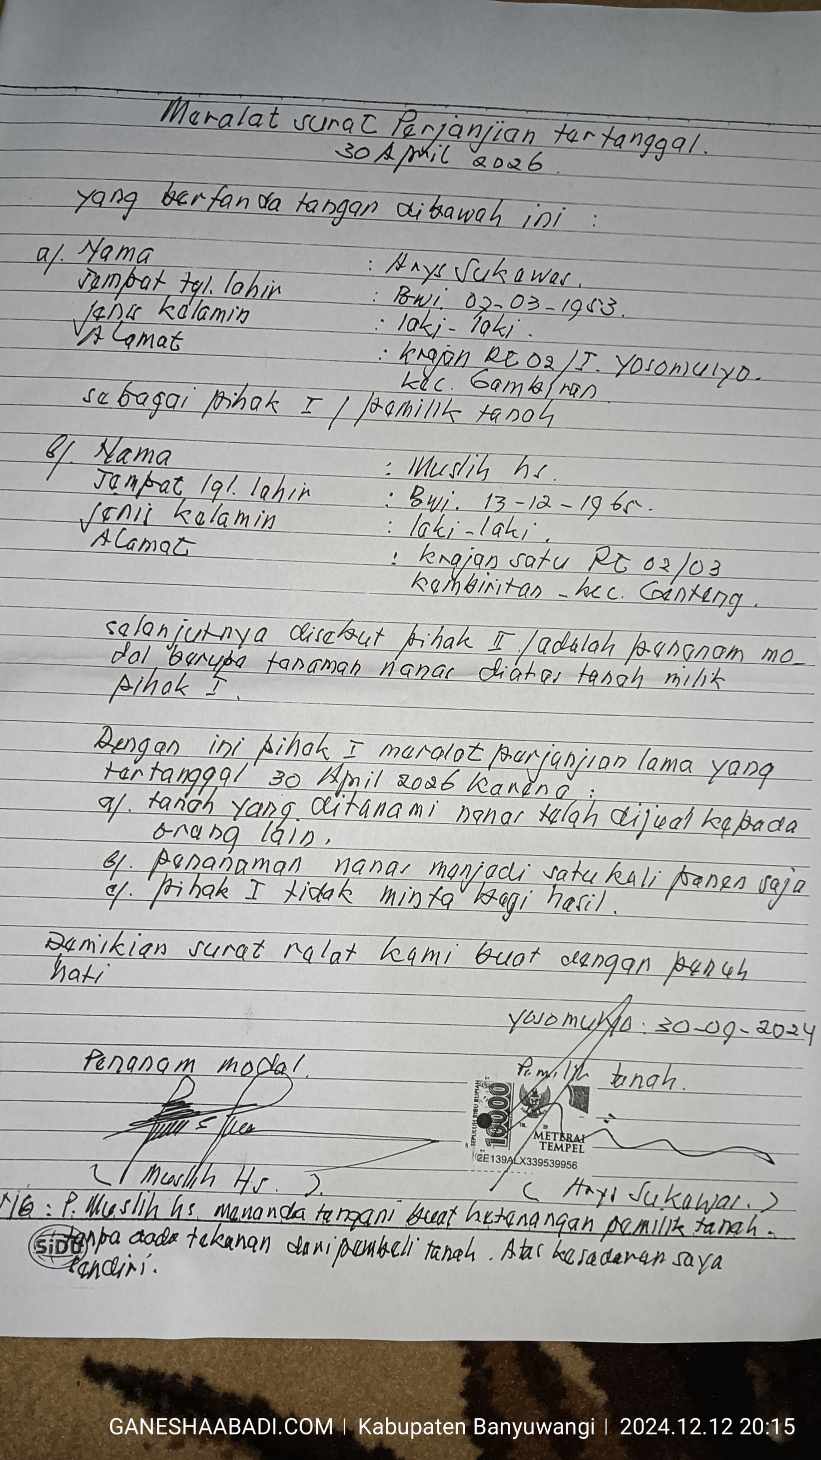 Meralat surat Perjanjian tertanggal.
30 April 2026.
yang bertanda tangan dibawah ini :
a/. Nama : Anys Sukawas.
Tempat tgl. lahir : Bwi. 02-03-1953.
Jenis kelamin : laki-laki.
Alamat : krajan RT 02/I. Yosomulyo.
kec. Gambiran
sebagai pihak I / pemilik tanah
b/. Nama : Muslih hs.
Tempat tgl. lahir : Bwi. 13-12-1965.
Jenis kelamin : laki-laki.
Alamat : krajan satu RT 02/03
kembiritan - kec. Genteng.
selanjutnya disebut pihak II / adalah penanam mo-
dal berupa tanaman nanas diatas tanah milik
pihak I.
Dengan ini pihak I meralat perjanjian lama yang
tertanggal 30 April 2026 karena :
a/. tanah yang ditanami nanas telah dijual kepada
orang lain.
b/. penanaman nanas menjadi satu kali panen saja
c/. pihak I tidak minta bagi hasil.
Demikian surat ralat kami buat dengan penuh
hati
Yosomulyo : 30-09-2024
Penanam modal. Pemilik tanah.
SEPULUH RIBU RUPIAH
10000
METERAI
TEMPEL
2E139ALX339539956
( Muslih Hs. ) ( Anys Sukawas. )
NB : P. Muslih hs. menanda tangani buat keterangan pemilik tanah.
tanpa ada tekanan dari pembeli tanah. Atas kesadaran saya
SiDU sendiri.
GANESHAABADI.COM | Kabupaten Banyuwangi | 2024.12.12 20:15